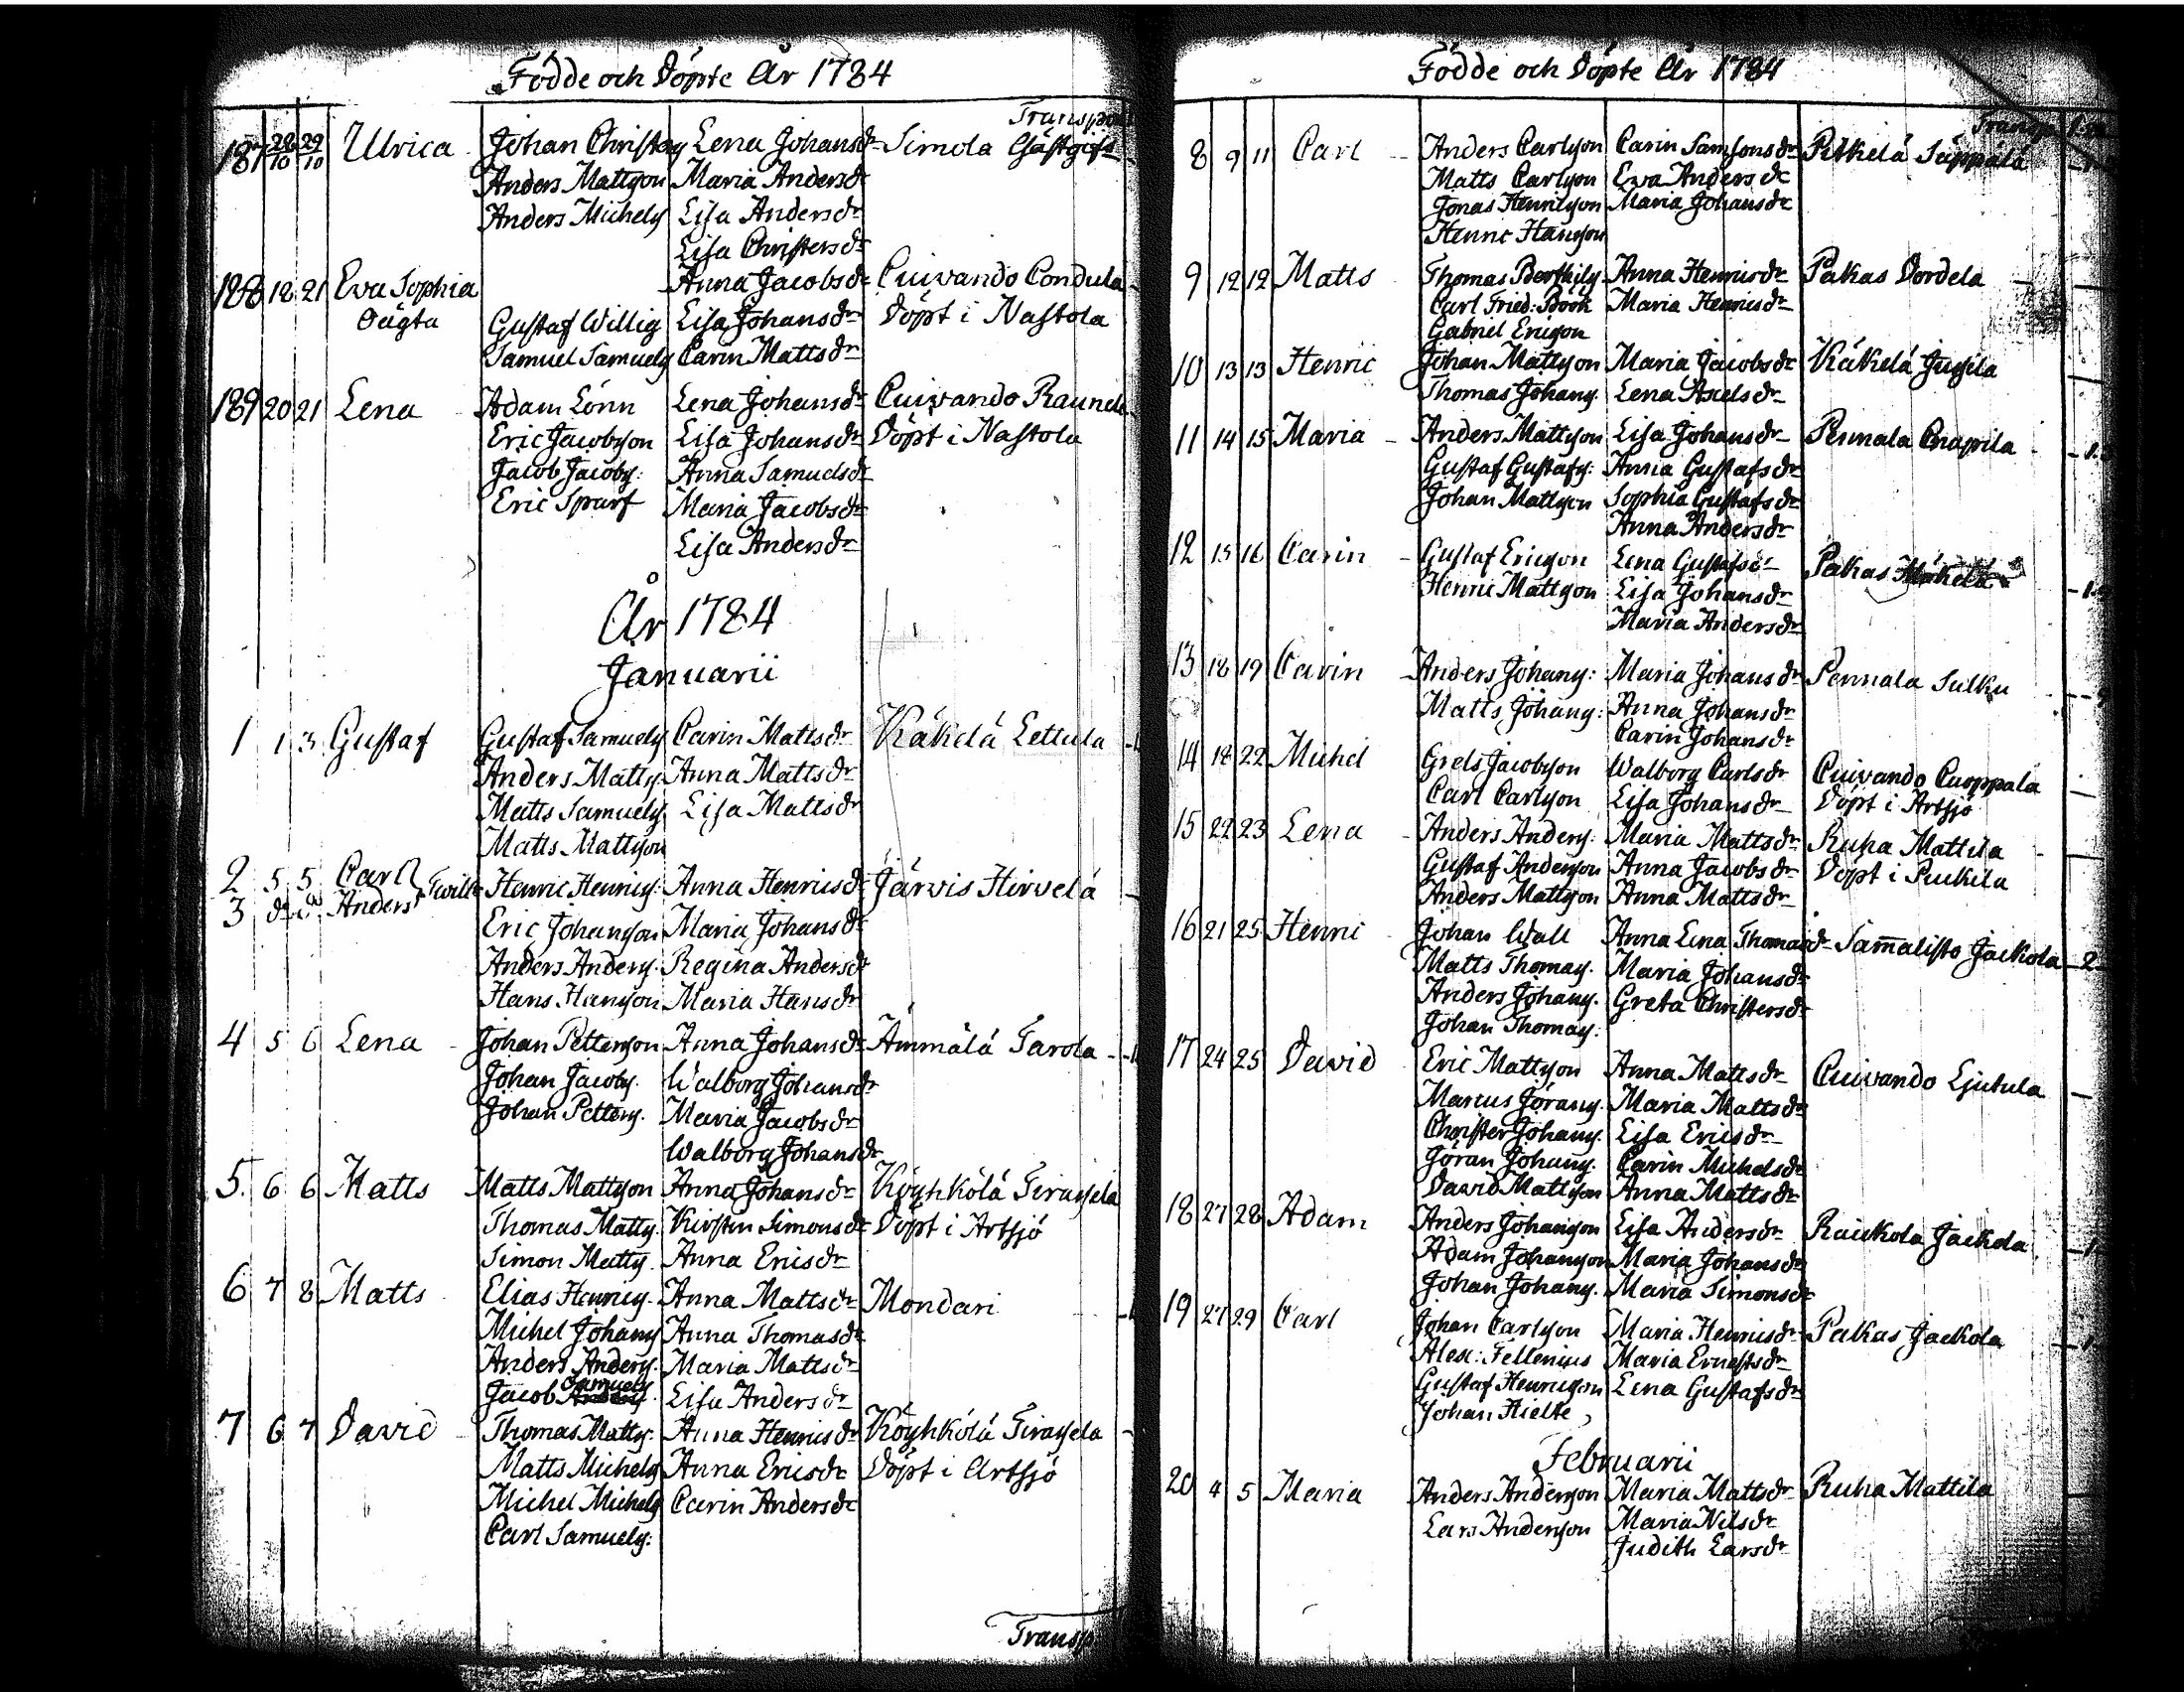 Födde och Döpte År 1784
Transport
187 28/10 29/10 Ulrica Johan Christers Lena Johansdr Simola Gästgifv
Anders Mattson Maria Andersdr
Anders Michels Lisa Andersdr
Lisa Christersdr
188 18 21 Eva Sophia Anna Jacobsdr Cuivando Condula
Oägta Gustaf Willig Lisa Johansdr Döpt i Nastola
Samuel Samuels Carin Mattsdr
189 20 21 Lena Adam Lönn Lena Johansdr Cuivando
Eric Jacobsson Lisa Johansdr Döpt i Nastola
Jacob Jacobs: Anna Samuelsdr
Eric Sparf Maria Jacobsdr
Lisa Andersdr
År 1784
Januarii
1 1 3 Gustaf Gustaf Samuels Carin Mattsdr Käkelä Lettula
Anders Matts. Anna Mattsdr
Matts Samuels. Lisa Mattsdr
Matts Mattson
2 5 5 Carl Twill: Henric Henrics: Anna Henricsdr Järvis Hirvelä
3 do do Anders
Eric Johanson Maria Johansdr
Anders Anders. Regina Andersdr
Hans Hanson Maria Hansdr
4 5 6 Lena Johan Petterson Anna Johansdr Ämmälä Tarola
Johan Jacobs. Walborg Johansdr
Johan Petters. Maria Jacobsdr
Walborg Johansdr
5. 6 6 Matts Matts Mattson Anna Johansdr Köyhkölä
Thomas Matts. Kirstin Simonsdr Döpt i Artsjö
Simon Matts. Anna Ericsdr
6 7 8 Matts Elias Henrics. Anna Mattsdr Mondari
Michel Johans Anna Thomasdr
Anders Anders. Maria Mattsdr
Samuels
Jacob Lisa Andersdr
7 6 7 David Thomas Matts. Anna Henricsdr Köyhkölä
Matts Michels Anna Ericsdr Döpt i Artsjö
Michel Michels Carin Andersdr
Carl Samuels.
Transp
Födde och Döpte År 1784
Transp
8 9 11 Carl Anders Carlson Carin Samsonsdr Pitkelä Säppälä
Matts Carlson Eva Andersdr
Jonas Henricson Maria Johansdr
Henric Hanson
9 12 12 Matts Thomas Berthils Anna Henricsdr Pakas Dordela
Carl Fried: Böök Maria Henricsdr
Gabriel Ericson
10 13 13 Henric Johan Mattson Maria Jacobsdr Käkelä Jussila
Thomas Johans. Lena Axelsdr
11 14 15 Maria Anders Mattson Lisa Johansdr Pennala Cnapila
Gustaf Gustafs: Anna Gustafsdr
Johan Mattson Sophia Gustafsdr
Anna Andersdr
12 15 16 Carin Gustaf Ericson Lena Gustafsdr Pakas
Henric Mattson Lisa Johansdr
Maria Andersdr
13 18 19 Carin Anders Johans: Maria Johansdr Pennala Sulku
Matts Johans: Anna Johansdr
Carin Johansdr
14 18 22 Michel Grels Jacobson Walborg Carlsdr Cuivando Cuoppala
Carl Carlson Lisa Johansdr Döpt i Artsjö
15 22 23 Lena Anders Anders. Maria Mattsdr Ruha Mattila
Gustaf Anderson Anna Jacobsdr Döpt i Puckila
Anders Mattson Anna Mattsdr
16 21 25 Henric Johan Wall Anna Lena Thomasdr Samalisto Jackola 2
Matts Thomas. Maria Johansdr
Anders Johans. Greta Christersdr
Johan Thomas:
17 24 25 David Eric Mattson Anna Mattsdr Cuivando Ljutula
Marcus Jörans. Maria Mattsdr
Christer Johans. Lisa Ericsdr
Jöran Johans. Carin Michelsdr
David Mattson Anna Mattsdr
18 27 28 Adam Anders Johanson Lisa Andersdr Rauckola Jackola
Adam Johanson Maria Johansdr
Johan Johans. Maria Simonsdr
19 27 29 Carl Johan Carlson Maria Henricsdr Pakas Jackola
Alex: Fellenius Maria Ernestsdr
Gustaf Henricson Lena Gustafsdr
Johan Hielte
Februarii
20 4 5 Maria Anders Anderson Maria Mattsdr Ruha Mattila
Lars Anderson Maria Nilsdr
Judith Larsdr